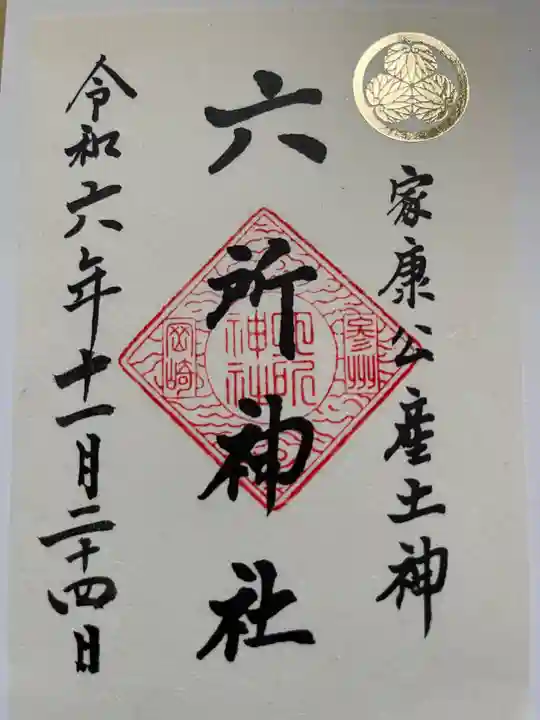 家康公産土神
六所神社
参州
六所
神社
岡崎
令和六年十一月二十四日